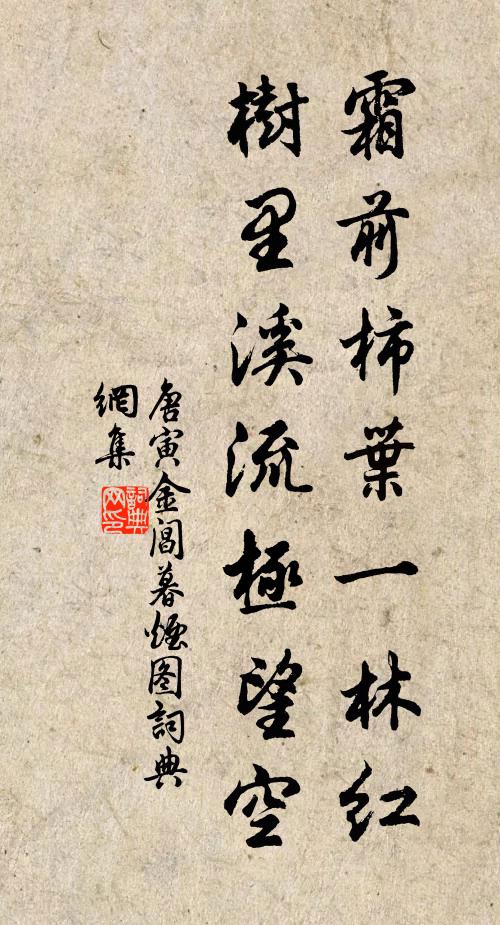 霜前柿葉一林红
樹里溪流極望空
唐寅金閶暮煙图詞典
網集
詞典
网印